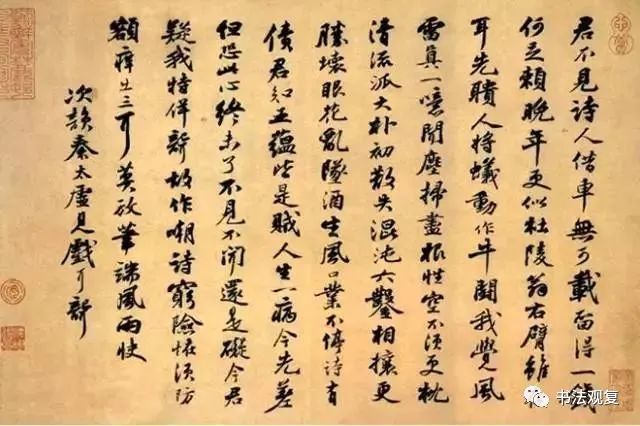 君不見詩人借車無可載留得一錢
何足賴晚年更似杜陵翁右臂雖
耳先聵人將蟻動作牛鬪我覺風
雷真一噫聞塵掃盡根性空不須更枕
清流派大朴初散失混沌六鑿相攘更
勝壞眼花亂墜酒生風口業不停詩有
債君知五蘊皆是賊人生一病今先差
但恐此心終未了不見不聞還是礙今君
疑我特佯聾故作嘲詩窮險怪須防
額痒出三耳莫放筆端風雨快
次韻秦太虛見戲耳聾
书法观复